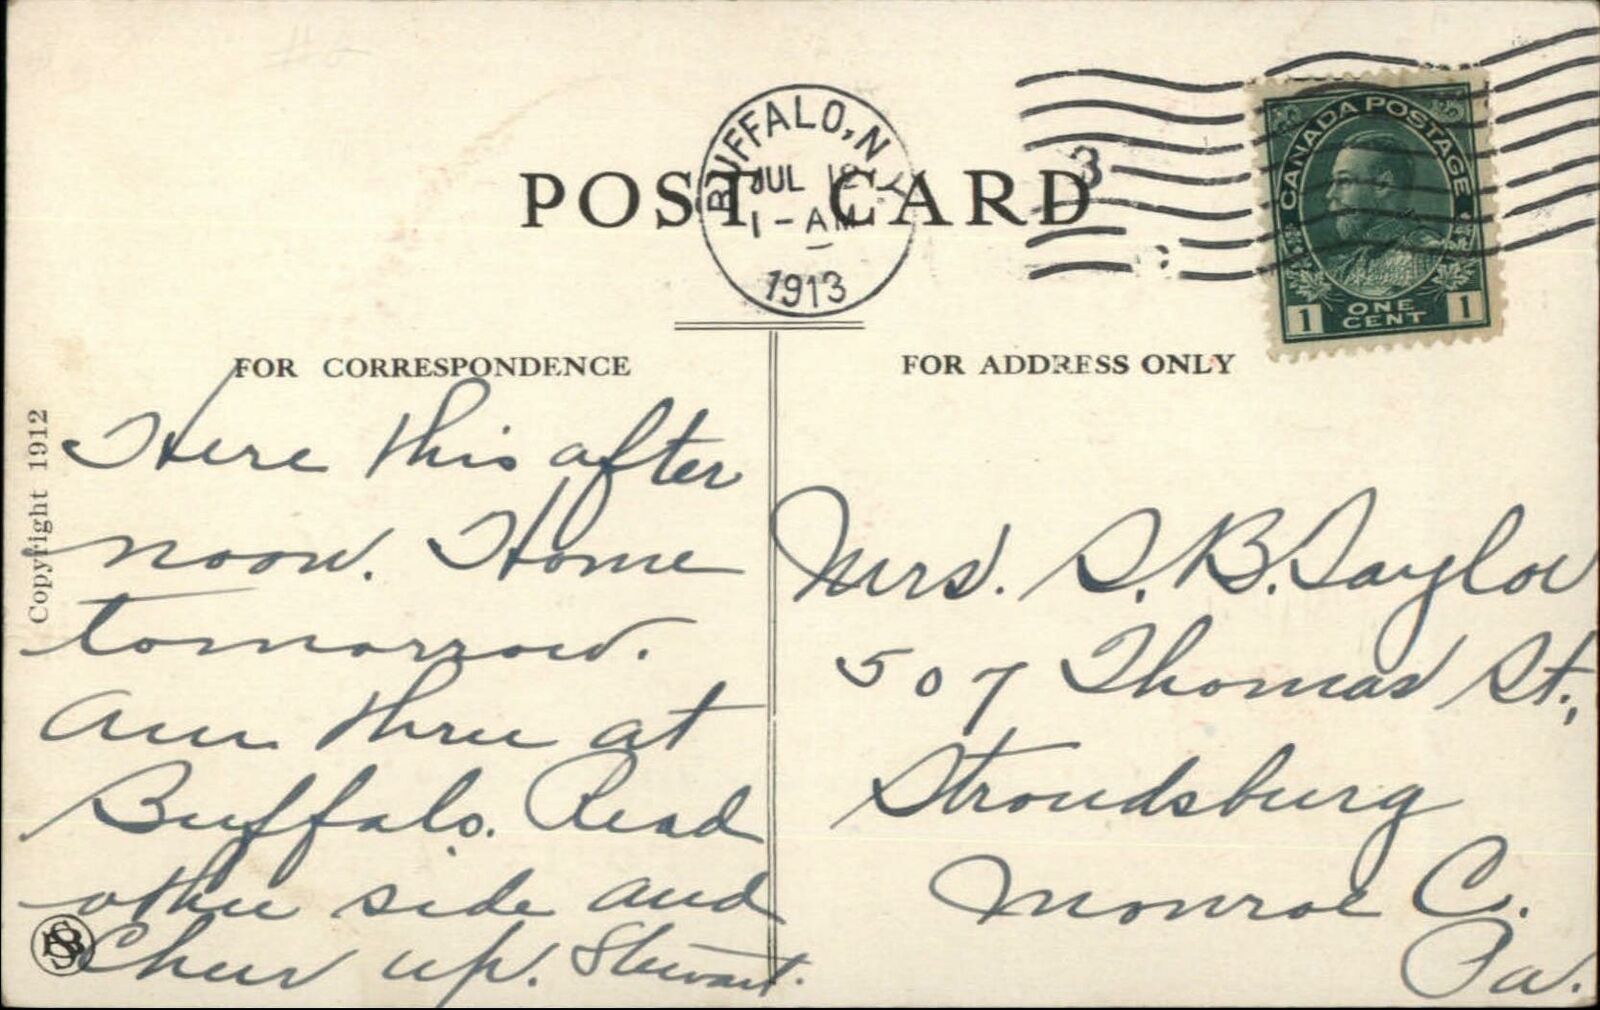 BUFFALO, N.Y.
JUL 12
1-AM
1913
3
POST CARD
CANADA POSTAGE
1 ONE CENT 1
FOR CORRESPONDENCE
FOR ADDRESS ONLY
Copyright 1912
Here this after
noon. Home
tomorrow.
Am thru at
Buffalo. Read
other side and
Cheer up. Stewart.
Mrs. S. B. Taylor
507 Thomas St.,
Stroudsburg
Monroe C.
Pa.